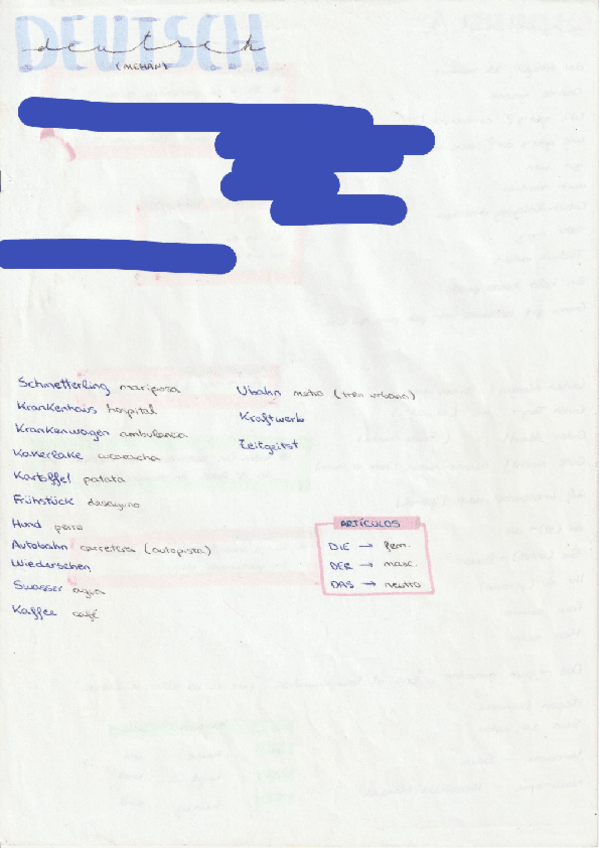 DEUTSCH
deutsch
Schmetterling mariposa
Krankenhaus hospital
Krankenwagen ambulancia
Kakerlake cucaracha
Kartoffel patata
Frühstück desayuno
Hund perro
Autobahn carretera (autopista)
Wiedersehen
Swasser agua
Kaffee café
Ubahn metro (tren urbano)
Kraftwerk
Zeitgeitst
ARTÍCULOS
DIE → fem.
DER → masc.
DAS → neutro